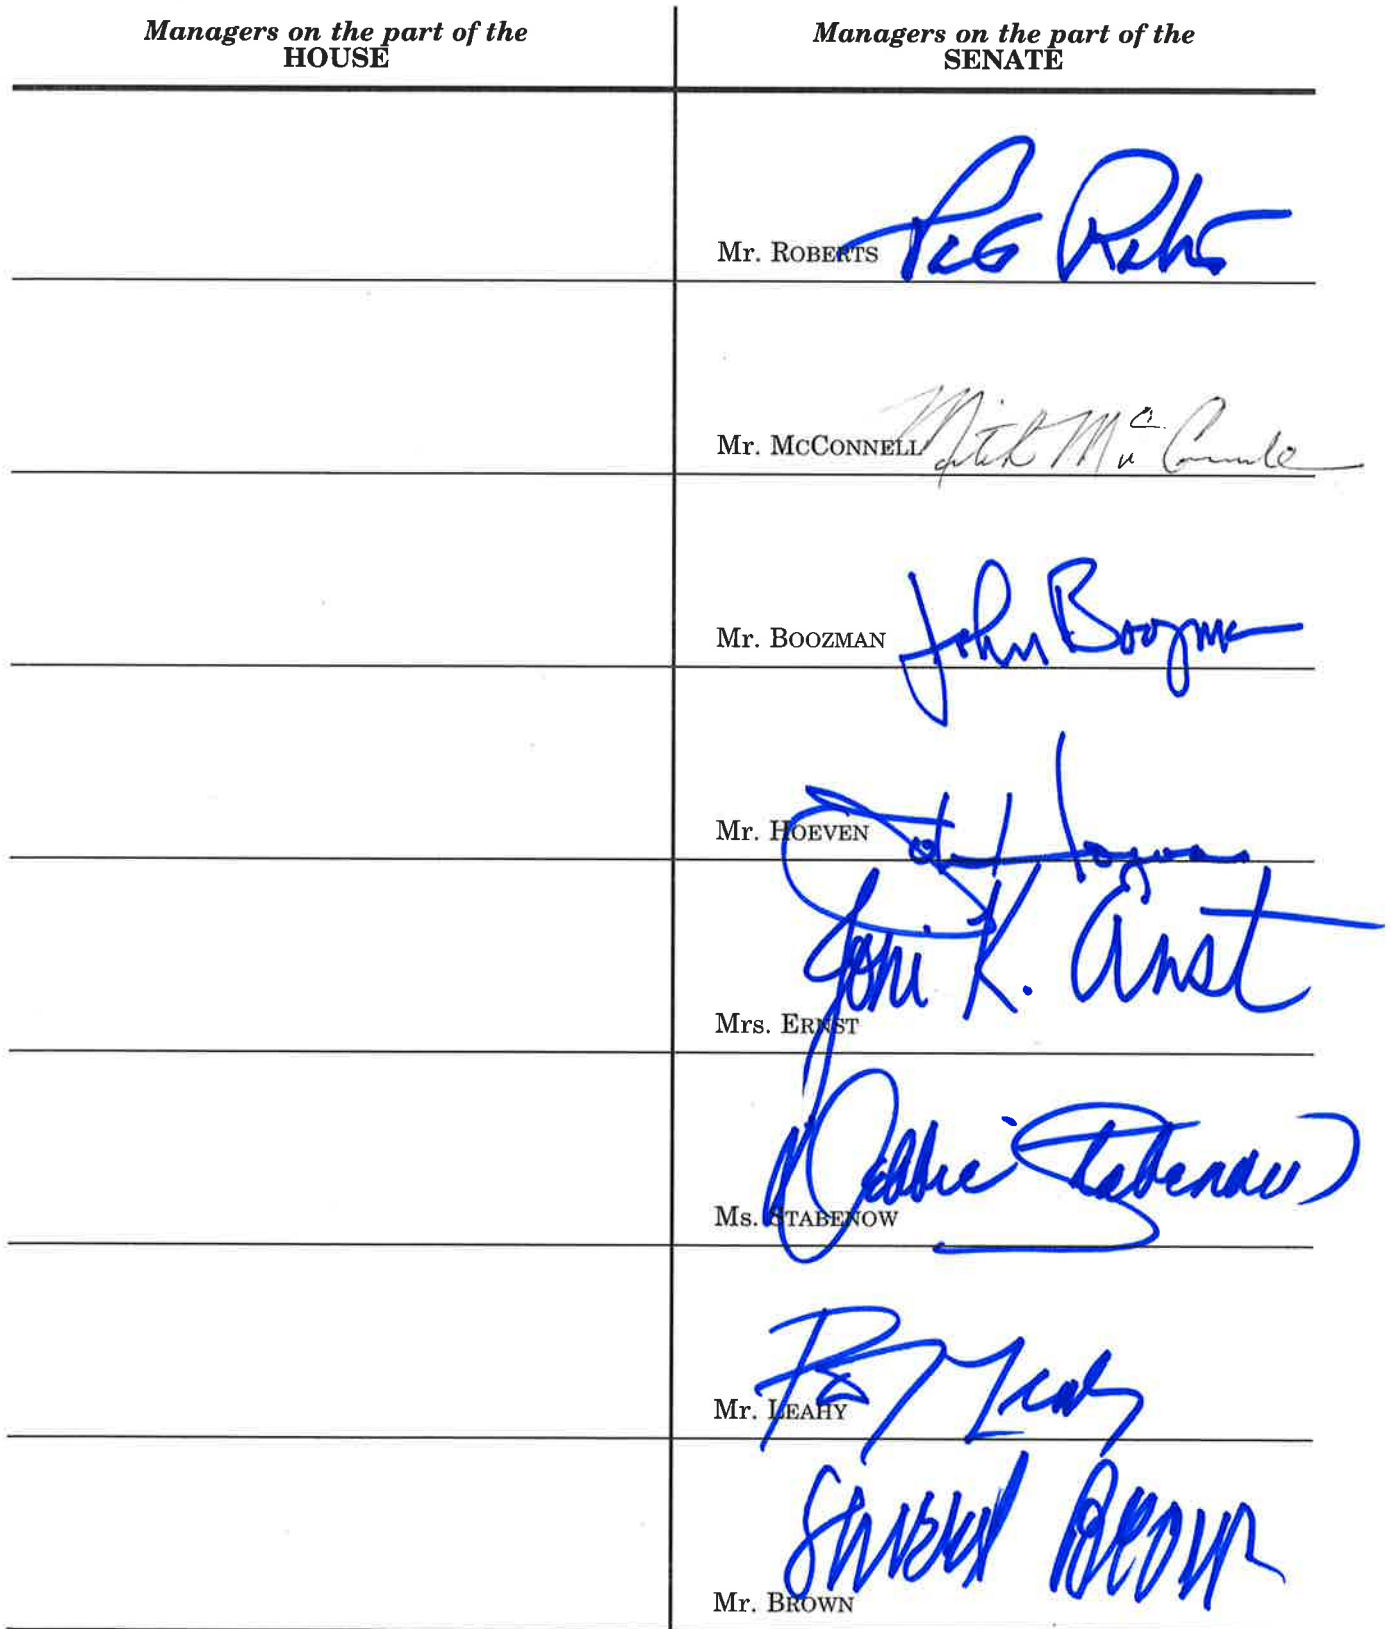 Managers on the part of the
HOUSE
Managers on the part of the
SENATE
Mr. ROBERTS Pat Roberts
Mr. MCCONNELL Mitch McConnell
Mr. BOOZMAN John Boozman
Mr. HOEVEN John Hoeven
Mrs. ERNST Joni K. Ernst
Ms. STABENOW Debbie Stabenow
Mr. LEAHY Leahy
Mr. BROWN Sherrod Brown